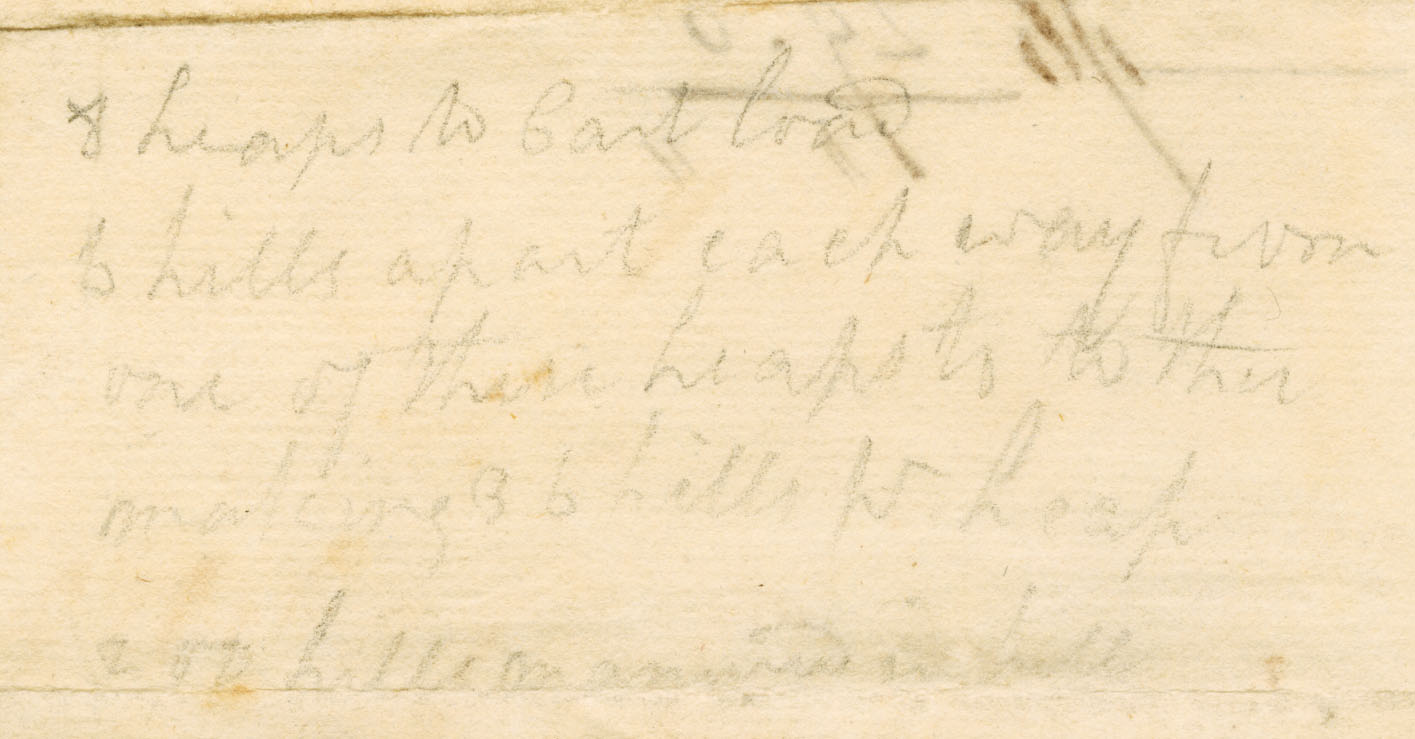 8 heaps to Cart load
6 hills apart each way from
one of these heaps to tother
making 36 hills pr heap
hills manured in hill